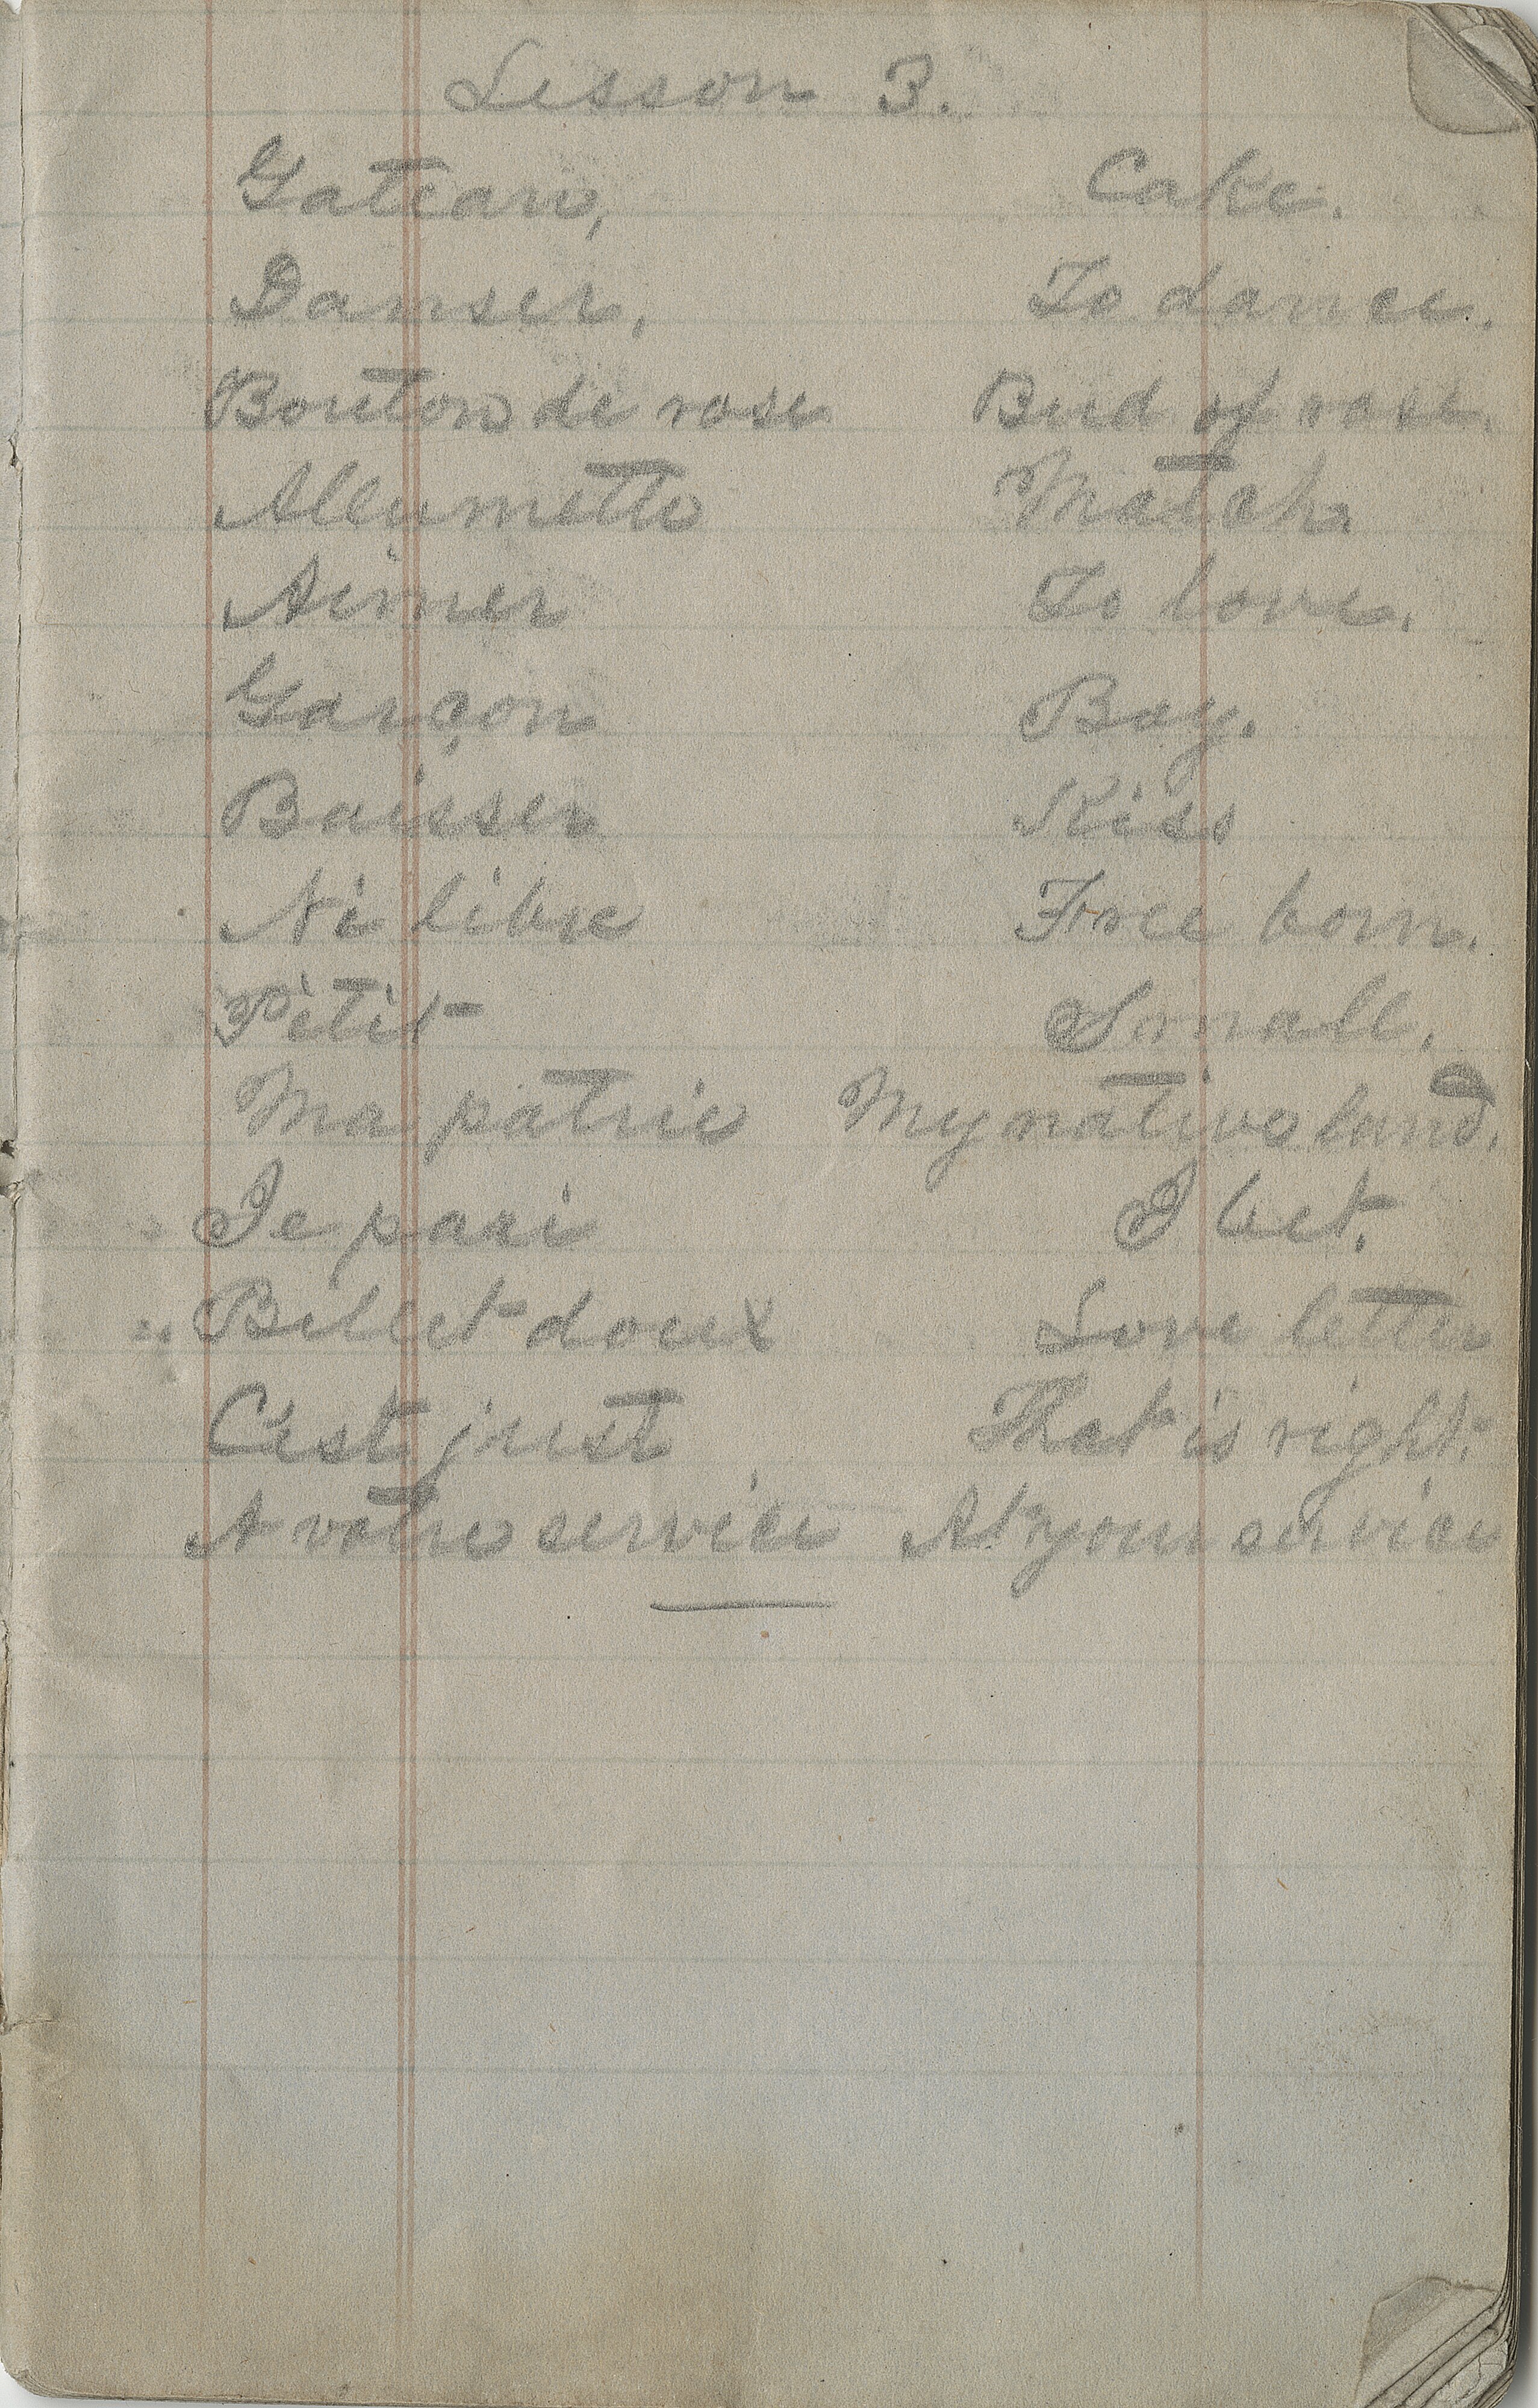 Lesson 3.
Gateau, Cake.
Danser. To dance.
Bouton de rose Bud of rose.
Allumette Match
Aimer To love.
Garçon Boy.
Baisser Kiss
Né libre Free born.
Pétit Small.
Ma patrie My native land.
Je pari I bet.
Billet doux Love letter
C'est just That is right.
A votre service At your service